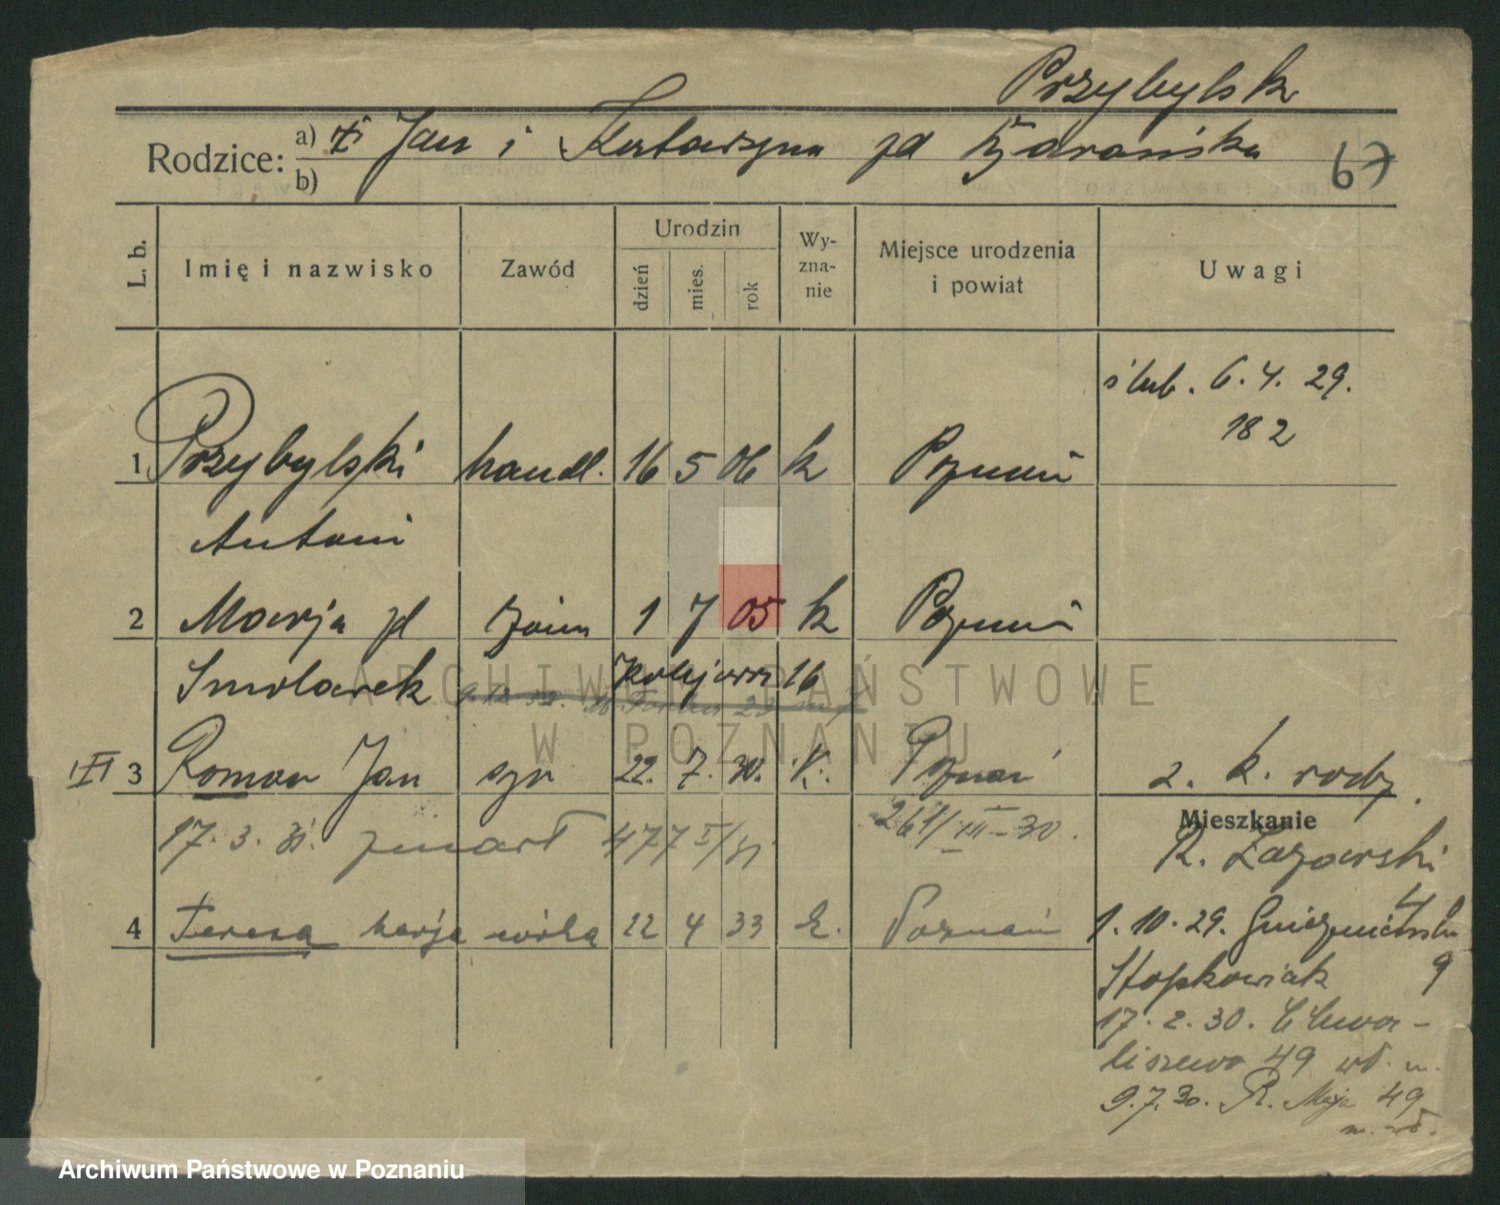 Przybylsk
Rodzice: a) Jan i Katarzyna zd
b)
67
L. b.
Imię i nazwisko
Zawód
Urodzin
dzień
mies.
rok
Wy-
zna-
nie
Miejsce urodzenia
i powiat
Uwagi
ślub. 6. 4. 29.
182
1 Przybylski handl. 16 5 06 k Poznań
Antoni
2 Marja zd żona 1 7 05 k Poznań
Smolarek 16
3 Roman Jan syn 22. 7. 30. k. Poznań
2. k. rodz.
17. 3. 31. zmarł 477 II/31
261/III-30.
Mieszkanie
R. Łazarski
4
4 Teresa Marja córka 22 4 33 k. Poznań
1. 10. 29. Gnieźnieńska
Stopkowiak 9
17. 2. 30. Chwa-
liszewo 49 wł. m.
9. 7. 30. R. Maja 49
m. wł.
ARCHIWUM PAŃSTWOWE
W POZNANIU
Archiwum Państwowe w Poznaniu